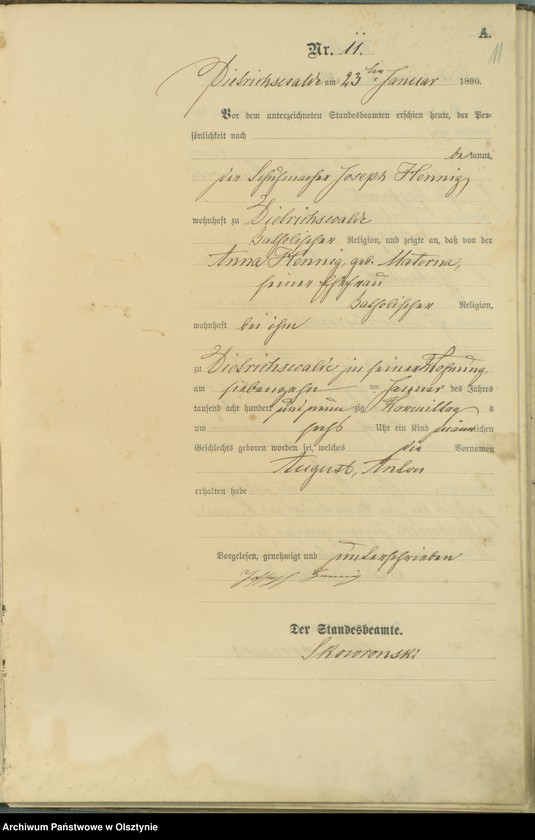 A.
11
Nr. 11.
Dietrichswalde am 23ten Januar 1890.
Vor dem unterzeichneten Standesbeamten erschien heute, der Per-
sönlichkeit nach
bekannt,
der Schuhmacher Joseph Hennig,
wohnhaft zu Dietrichswalde
katholischer Religion, und zeigte an, daß von der
Anna Hennig, geb. Materna,
seiner Ehefrau
katholischer Religion,
wohnhaft bei ihm
zu Dietrichswalde in seiner Wohnung
am siebenzehn ten Januar des Jahres
tausend acht hundert und neun zig Vormittag s
um sechs Uhr ein Kind männlichen
Geschlechts geboren worden sei, welches die Vornamen
August, Anton
erhalten habe
Vorgelesen, genehmigt und unterschrieben
Joseph Hennig
Der Standesbeamte.
Skowronski
Archiwum Państwowe w Olsztynie